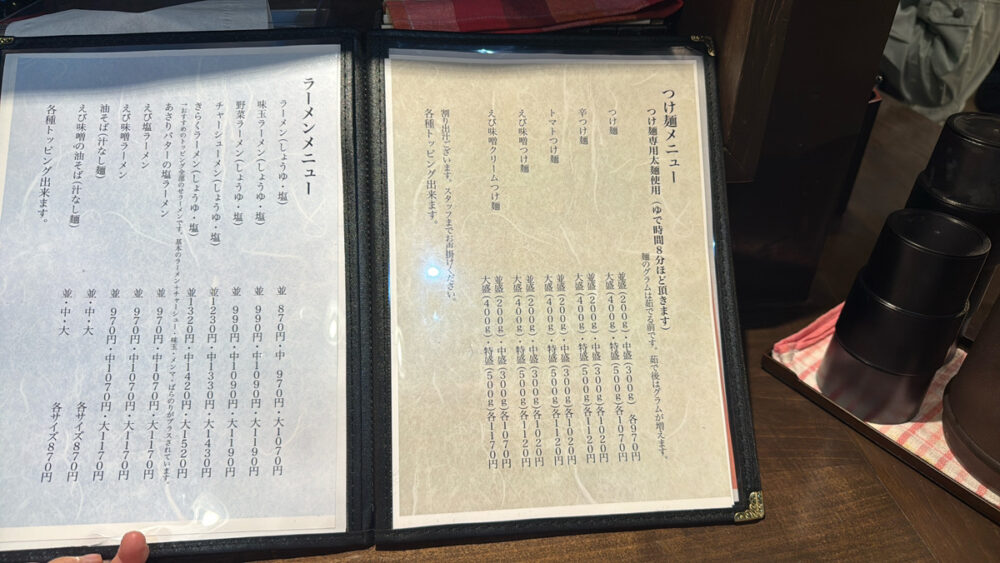 つけ麺メニュー
つけ麺専用太麺使用(ゆで時間8分ほど頂きます)
麺のグラムは茹でる前です。茹で後はグラムが増えます。
つけ麺
並盛(200g)・中盛(300g) 各970円
大盛(400g)・特盛(500g)各1070円
辛つけ麺
並盛(200g)・中盛(300g)各1020円
大盛(400g)・特盛(500g)各1120円
トマトつけ麺
並盛(200g)・中盛(300g)各1020円
大盛(400g)・特盛(500g)各1120円
えび味噌つけ麺
並盛(200g)・中盛(300g)各1020円
大盛(400g)・特盛(500g)各1120円
えび味噌クリームつけ麺
並盛(200g)・中盛(300g)各1070円
大盛(400g)・特盛(500g)各1170円
割り出汁ございます。スタッフまでお声掛けください。
各種トッピング出来ます。
ラーメンメニュー
ラーメン(しょうゆ・塩) 並 870円・中 970円・大1070円
味玉ラーメン(しょうゆ・塩) 並 990円・中1090円・大1190円
野菜ラーメン(しょうゆ・塩) 並 990円・中1090円・大1190円
チャーシューメン(しょうゆ・塩) 並1230円・中1330円・大1430円
きらくラーメン(しょうゆ・塩) 並1320円・中1420円・大1520円
→おすすめのトッピング全部のせラーメンです。基本のラーメン+チャーシュー・味玉・メンマ・ばらのりがプラスされています。
あさりバターの塩ラーメン 並 970円・中1070円・大1170円
えび塩ラーメン 並 970円・中1070円・大1170円
えび味噌ラーメン 並 970円・中1070円・大1170円
油そば(汁なし麺) 並・中・大 各サイズ870円
えび味噌の油そば(汁なし麺) 並・中・大 各サイズ870円
各種トッピング出来ます。